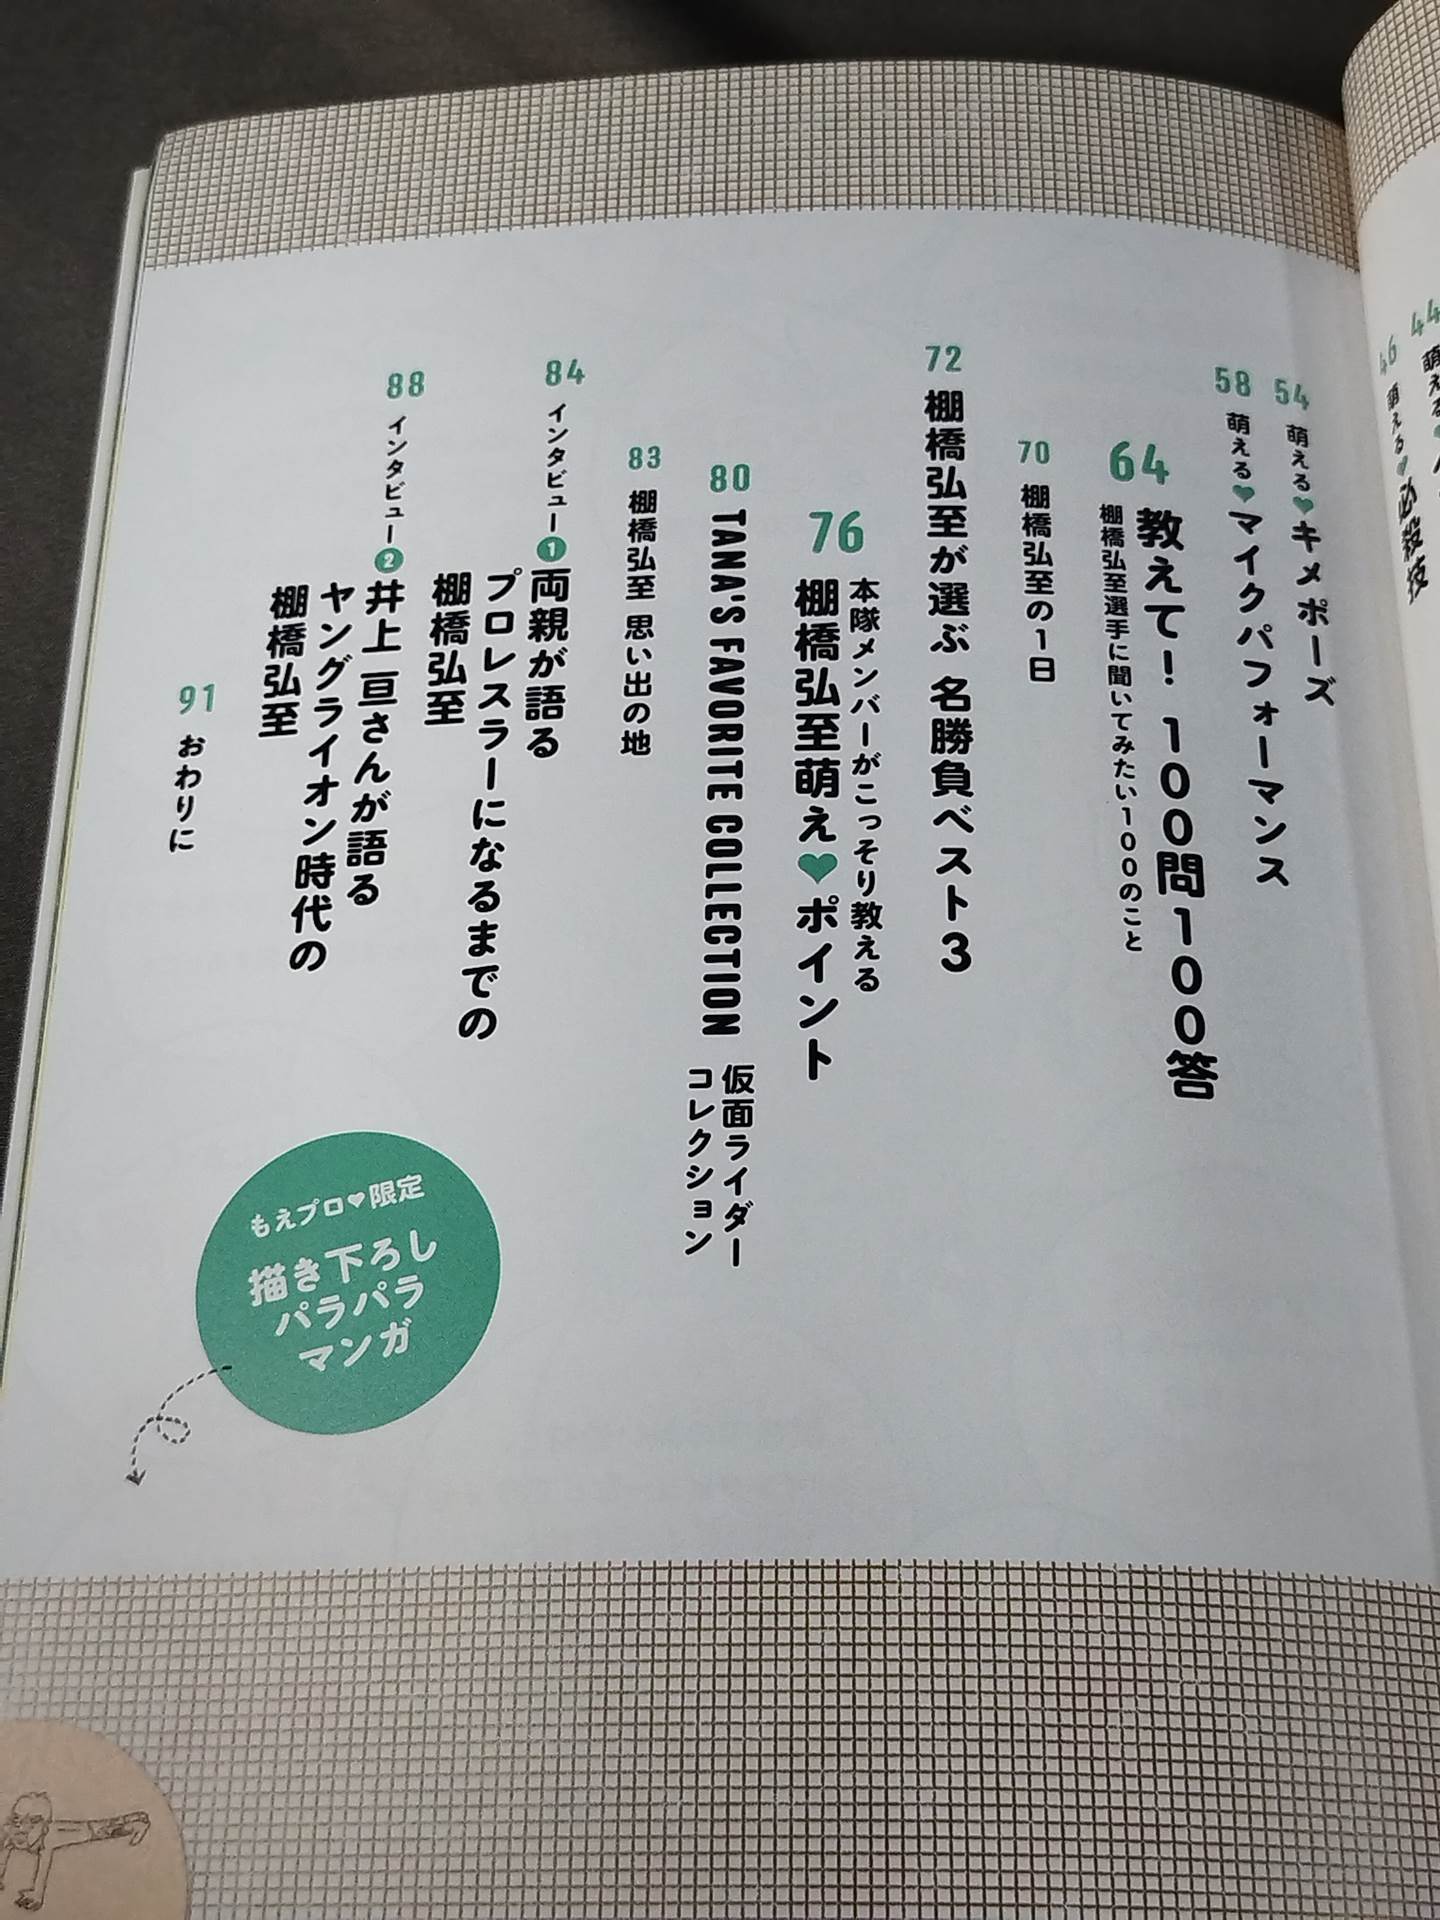 44
萌える♥
46
萌える♥必殺技
54
萌える♥キメポーズ
58
萌える♥マイクパフォーマンス
64
教えて！100問100答
棚橋弘至選手に聞いてみたい100のこと
70
棚橋弘至の1日
72
棚橋弘至が選ぶ 名勝負ベスト3
76
本隊メンバーがこっそり教える
棚橋弘至萌え♥ポイント
80
TANA'S FAVORITE COLLECTION
仮面ライダー
コレクション
83
棚橋弘至 思い出の地
84
インタビュー❶
両親が語る
プロレスラーになるまでの
棚橋弘至
88
インタビュー❷
井上 亘さんが語る
ヤングライオン時代の
棚橋弘至
91
おわりに
もえプロ♥限定
描き下ろし
パラパラ
マンガ